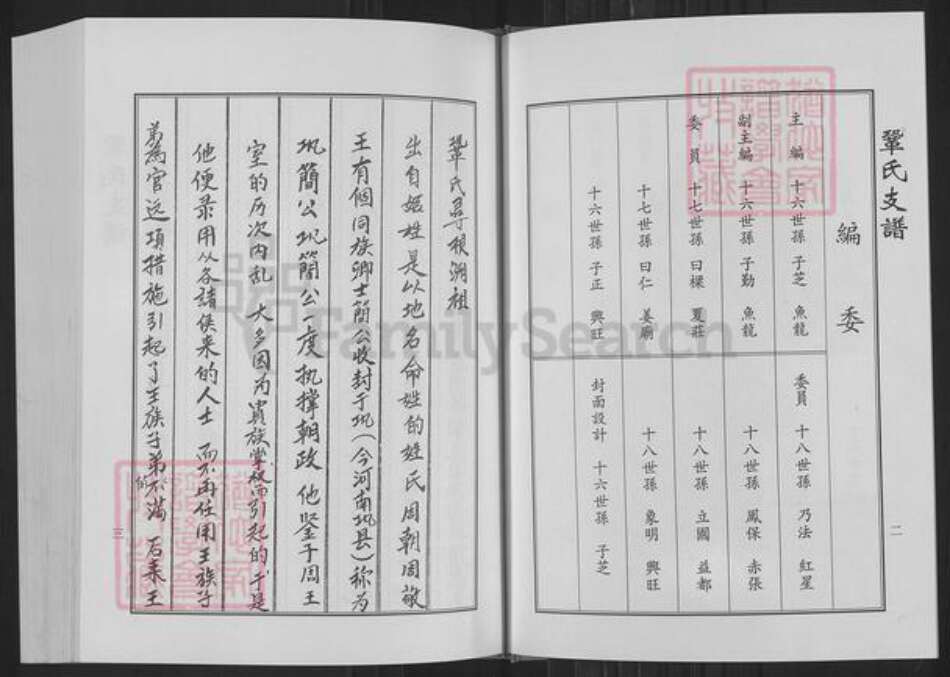 鞏氏支譜
編委
主編 十六世孫 子芝 魚龍
副主編 十六世孫 子勤 魚龍
委員 十七世孫 曰樑 夏莊
十七世孫 曰仁 姜廟
十六世孫 子正 興旺
委員 十八世孫 乃法 紅星
十八世孫 鳳保 赤張
十八世孫 立國 益都
十八世孫 象明 興旺
封面設計 十六世孫 子芝
二
鞏氏尋根溯祖
出自姬姓是以地名命姓的姓氏周朝周敬
王有個同族卿士簡公收封于巩(今河南巩县)称为
巩簡公巩簡公一度执撑朝政 他鉴于周王
室的历次内乱 大多因为貴族掌权而引起的 于是
他便录用从各諸侯来的人士 而不再任用王族子
弟為官这項措施引起了王族子弟的不满 后来王
三
FamilySearch